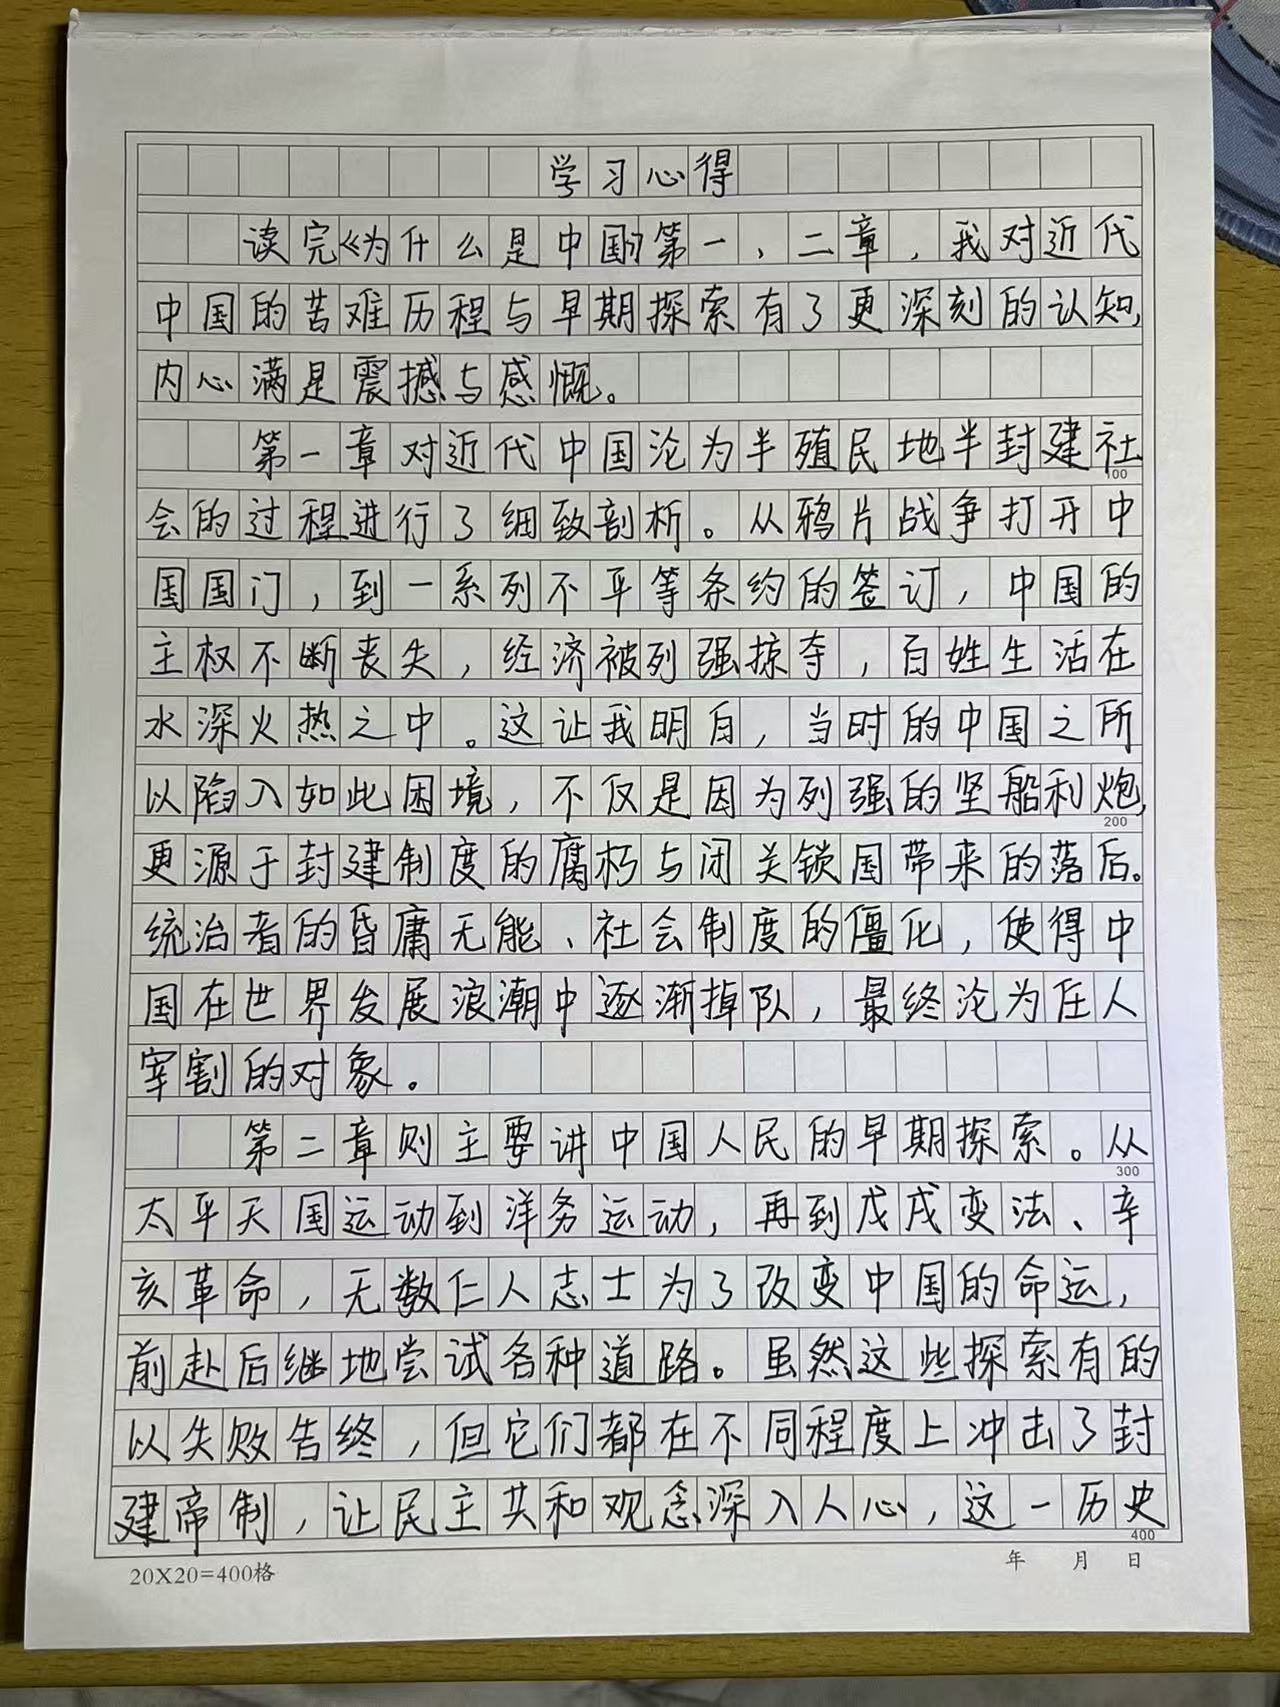 学习心得
读完《为什么是中国》第一、二章，我对近代
中国的苦难历程与早期探索有了更深刻的认知，
内心满是震撼与感慨。
第一章对近代中国沦为半殖民地半封建社
100
会的过程进行了细致剖析。从鸦片战争打开中
国国门，到一系列不平等条约的签订，中国的
主权不断丧失，经济被列强掠夺，百姓生活在
水深火热之中。这让我明白，当时的中国之所
以陷入如此困境，不仅是因为列强的坚船利炮，
200
更源于封建制度的腐朽与闭关锁国带来的落后。
统治者的昏庸无能、社会制度的僵化，使得中
国在世界发展浪潮中逐渐掉队，最终沦为任人
宰割的对象。
第二章则主要讲中国人民的早期探索。从
300
太平天国运动到洋务运动，再到戊戌变法、辛
亥革命，无数仁人志士为了改变中国的命运，
前赴后继地尝试各种道路。虽然这些探索有的
以失败告终，但它们都在不同程度上冲击了封
建帝制，让民主共和观念深入人心，这一历史
400
20X20=400格
年 月 日